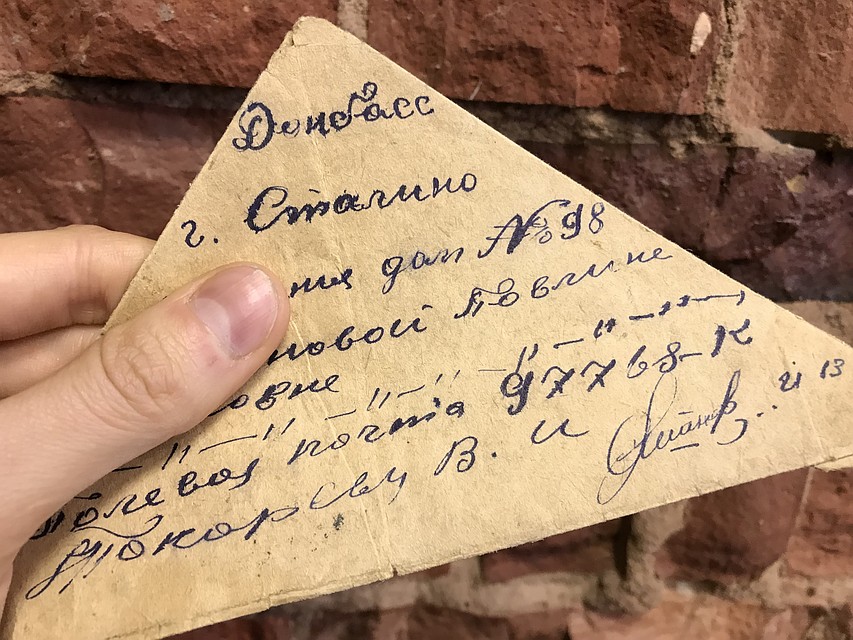 Донбасс
г. Сталино
ния дом №98
новой Повлине
овне
— 〃 — 〃 — 〃 — 〃 — 〃 — 〃 —
Полевоя почта 97768-К
Токорсву В. И